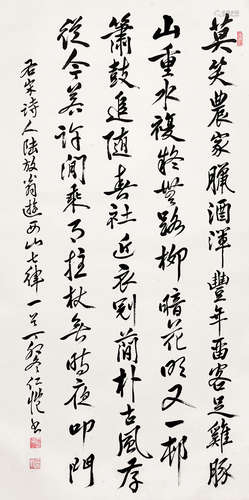 莫笑農家臘酒渾豐年留客足雞豚
山重水複疑無路柳暗花明又一邨
簫鼓追随春社近衣冠簡朴古風存
從今若許閒乘月拄杖無時夜叩門
右宋诗人陆放翁遊西山七律一首丁卯冬仁愷书